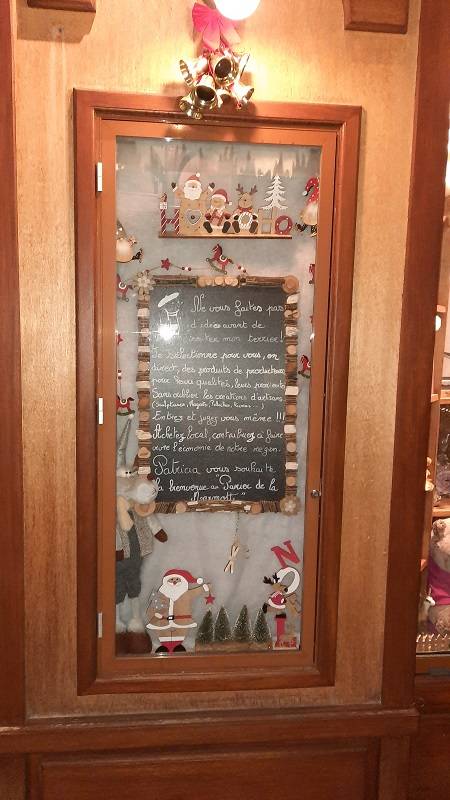 HO HO
Ne vous faites pas
d'idées avant de
visiter mon terrier!
Je sélectionne pour vous, en
direct, des produits de producteurs
pour leurs qualités, leurs proximités
Sans oublier les créations d'artisans
Entrez et jugez vous même !!!
Achetez local, contribuez à faire
vivre l'économie de notre région.
Patricia vous souhaite
la bienvenue au "Panier de la
Marmotte"
N
O